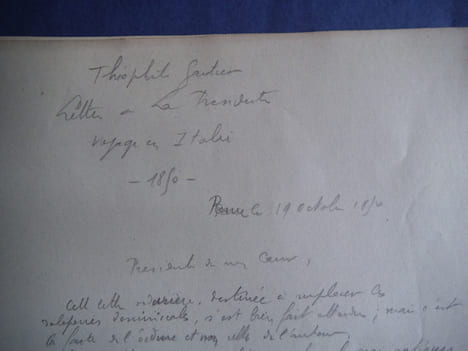 Théophile Gautier
Lettre à La Presidente
Voyage en Italie
- 1850 -
Rome le 19 Octobre 1850
Presidente de mon Coeur,
Cette lettre ordurière, destinée à remplacer les
saloperies dominicales, s'est bien fait attendre; mais c'est
la faute de l'ordure et non celle de l'auteur.